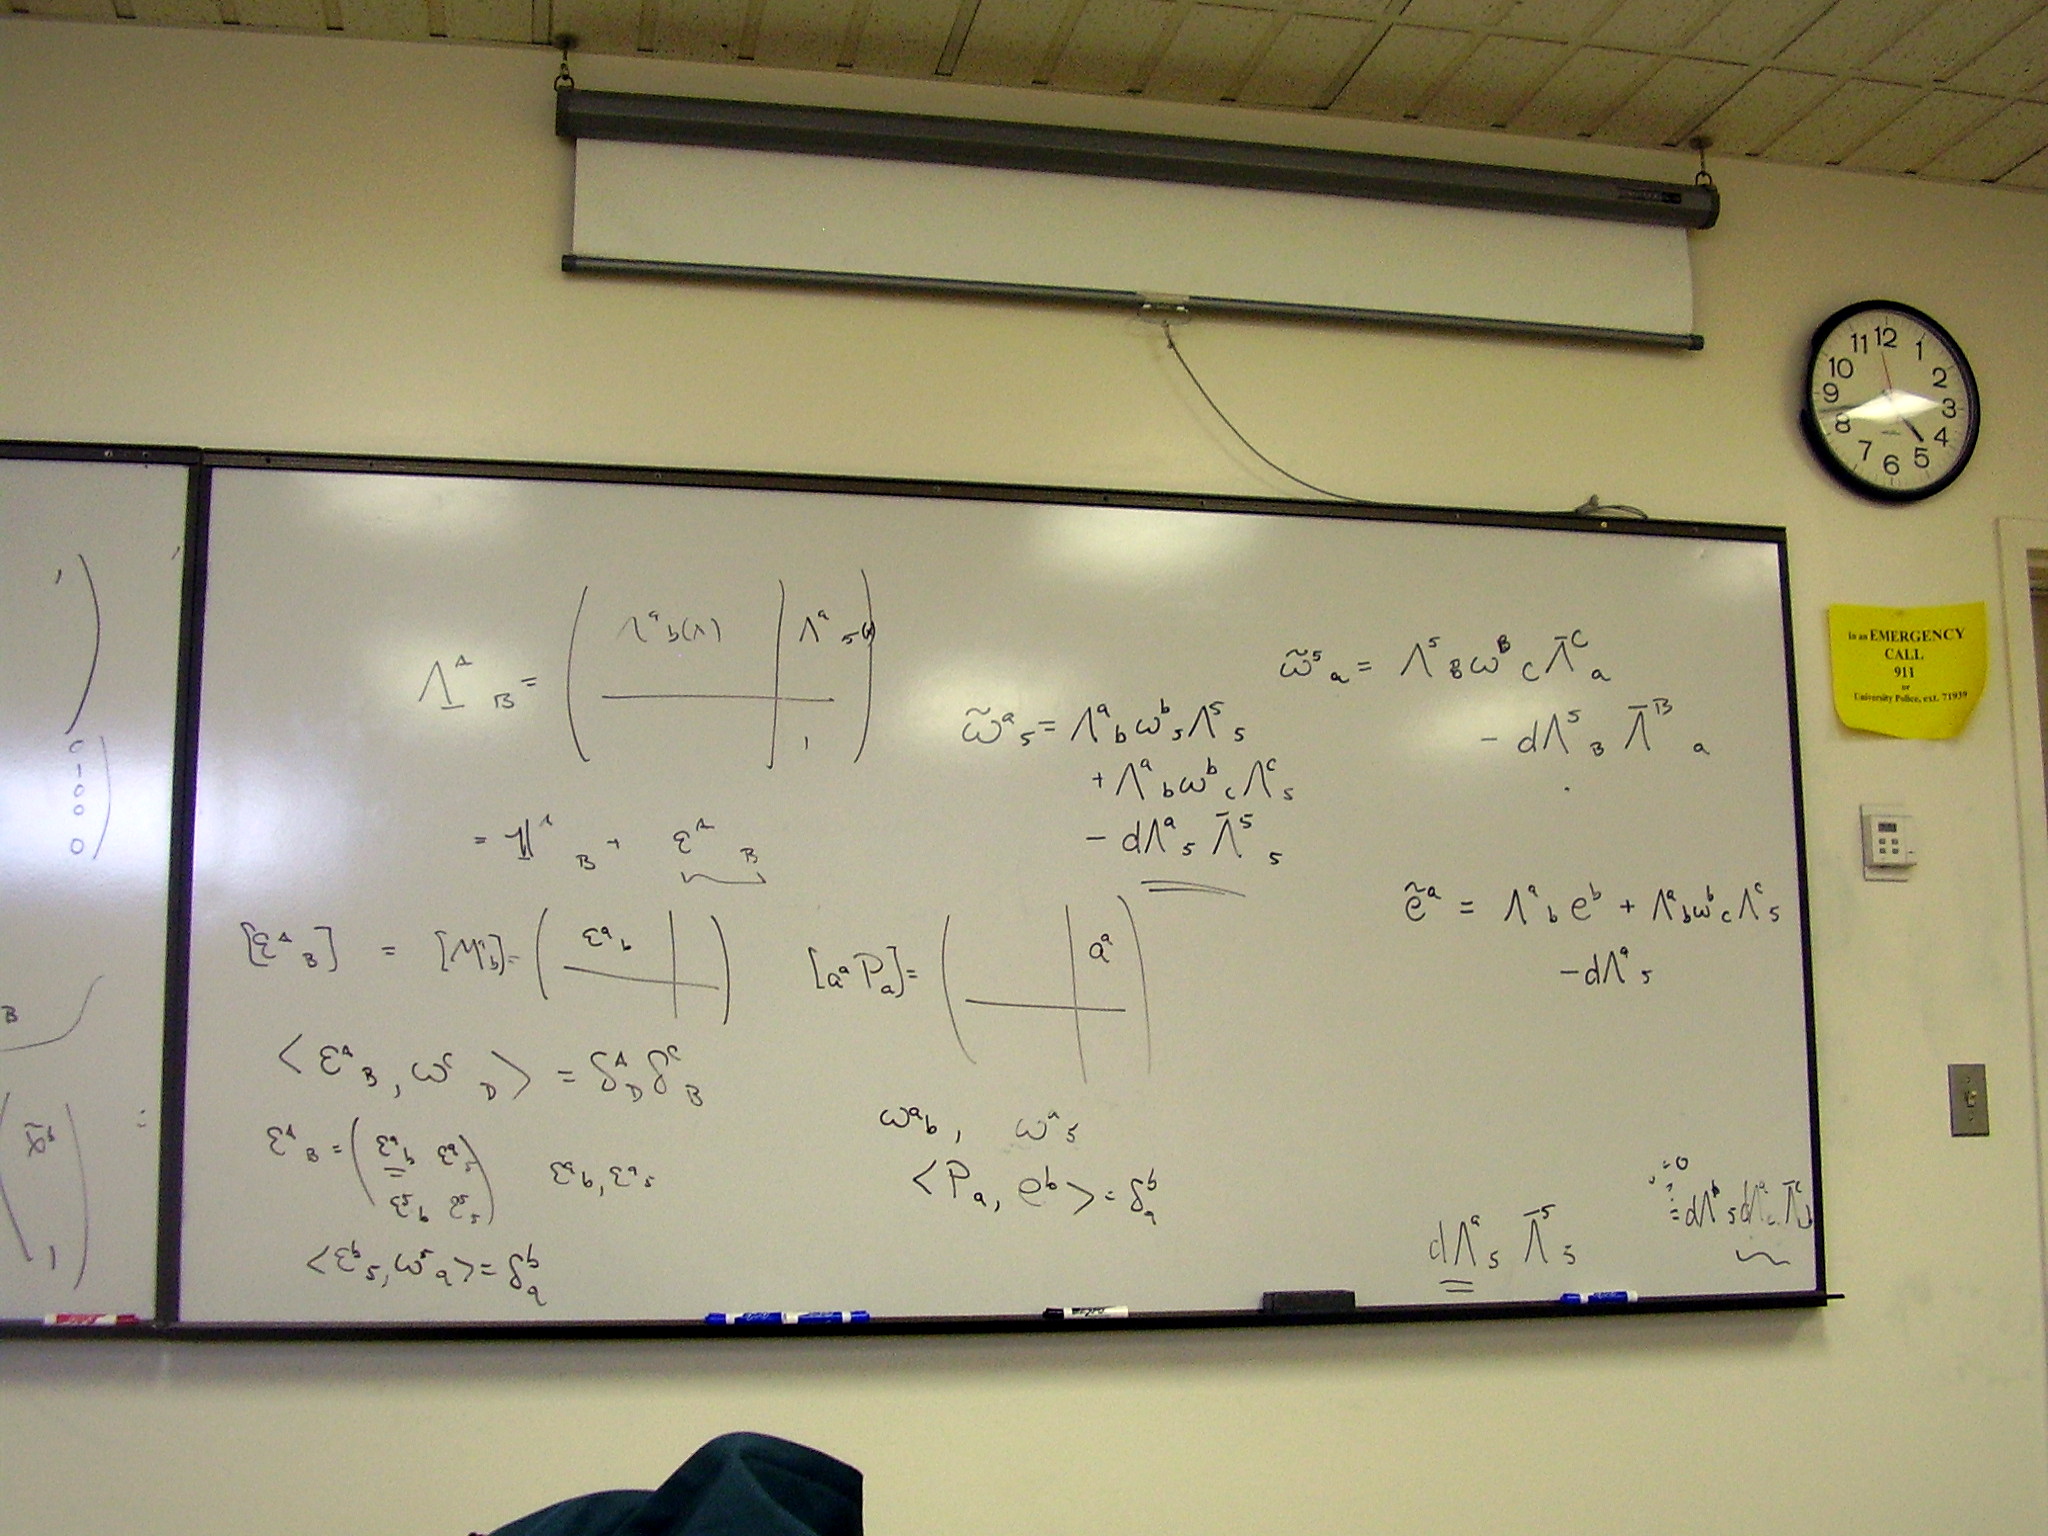 12
1
2
3
4
5
6
7
8
9
10
11
in an EMERGENCY
CALL
911
or
University Police, ext. 71939
0
1
0
0
0
B
=
1
Λ^A_B = ( Λ^a_b(Λ) | Λ^a_5
1 )
= 𝟙^A_B + ε^A_B
[ε^A_B] = [M^a_b] = ( ε^a_b )
[a^a P_a] = ( a^a )
<ε^A_B, ω^C_D> = δ^A_D δ^C_B
ε^A_B = ( ε^a_b ε^a_5
ε^5_b ε^5_5 )
ε^a_b, ε^a_5
<ε^b_5, ω^5_a> = δ^b_a
ω^a_b, ω^a_5
<P_a, e^b> = δ^b_a
ω̃^a_5 = Λ^a_b ω^b_5 Λ^5_5
+ Λ^a_b ω^b_c Λ^c_5
- dΛ^a_5 Λ̄^5_5
ω̃^5_a = Λ^5_B ω^B_C Λ̄^C_a
- dΛ^5_B Λ̄^B_a
ẽ^a = Λ^a_b e^b + Λ^a_b ω^b_c Λ^c_5
- dΛ^a_5
dΛ^a_5 Λ̄^5_5
= 0
= dΛ^b_5 dΛ^a_c Λ̄^c_b